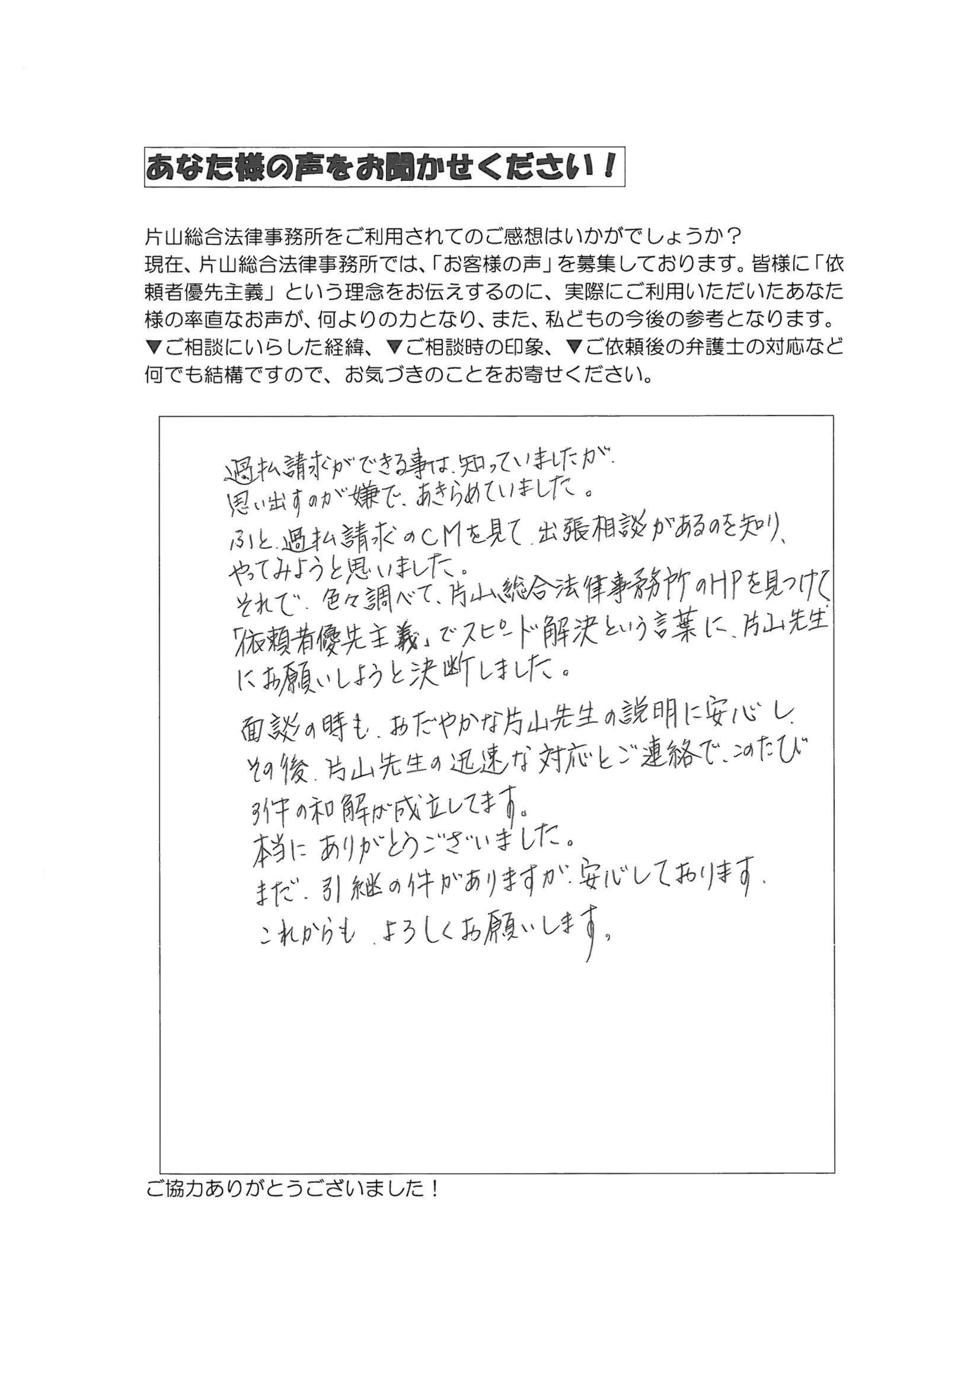 あなた様の声をお聞かせください！
片山総合法律事務所をご利用されてのご感想はいかがでしょうか？
現在、片山総合法律事務所では、「お客様の声」を募集しております。皆様に「依
頼者優先主義」という理念をお伝えするのに、実際にご利用いただいたあなた
様の率直なお声が、何よりの力となり、また、私どもの今後の参考となります。
▼ご相談にいらした経緯、▼ご相談時の印象、▼ご依頼後の弁護士の対応など
何でも結構ですので、お気づきのことをお寄せください。
過払請求ができる事は、知っていましたが、
思い出すのが嫌で、あきらめていました。
ふと、過払請求のCMを見て、出張相談があるのを知り、
やってみようと思いました。
それで、色々調べて、片山総合法律事務所のHPを見つけて
「依頼者優先主義」でスピード解決という言葉に、片山先生
にお願いしようと決断しました。
面談の時も、おだやかな片山先生の説明に安心し、
その後、片山先生の迅速な対応とご連絡で、このたび
件の和解が成立してます。
本当にありがとうございました。
まだ、引継の件がありますが、安心しております。
これからも、よろしくお願いします。
ご協力ありがとうございました！